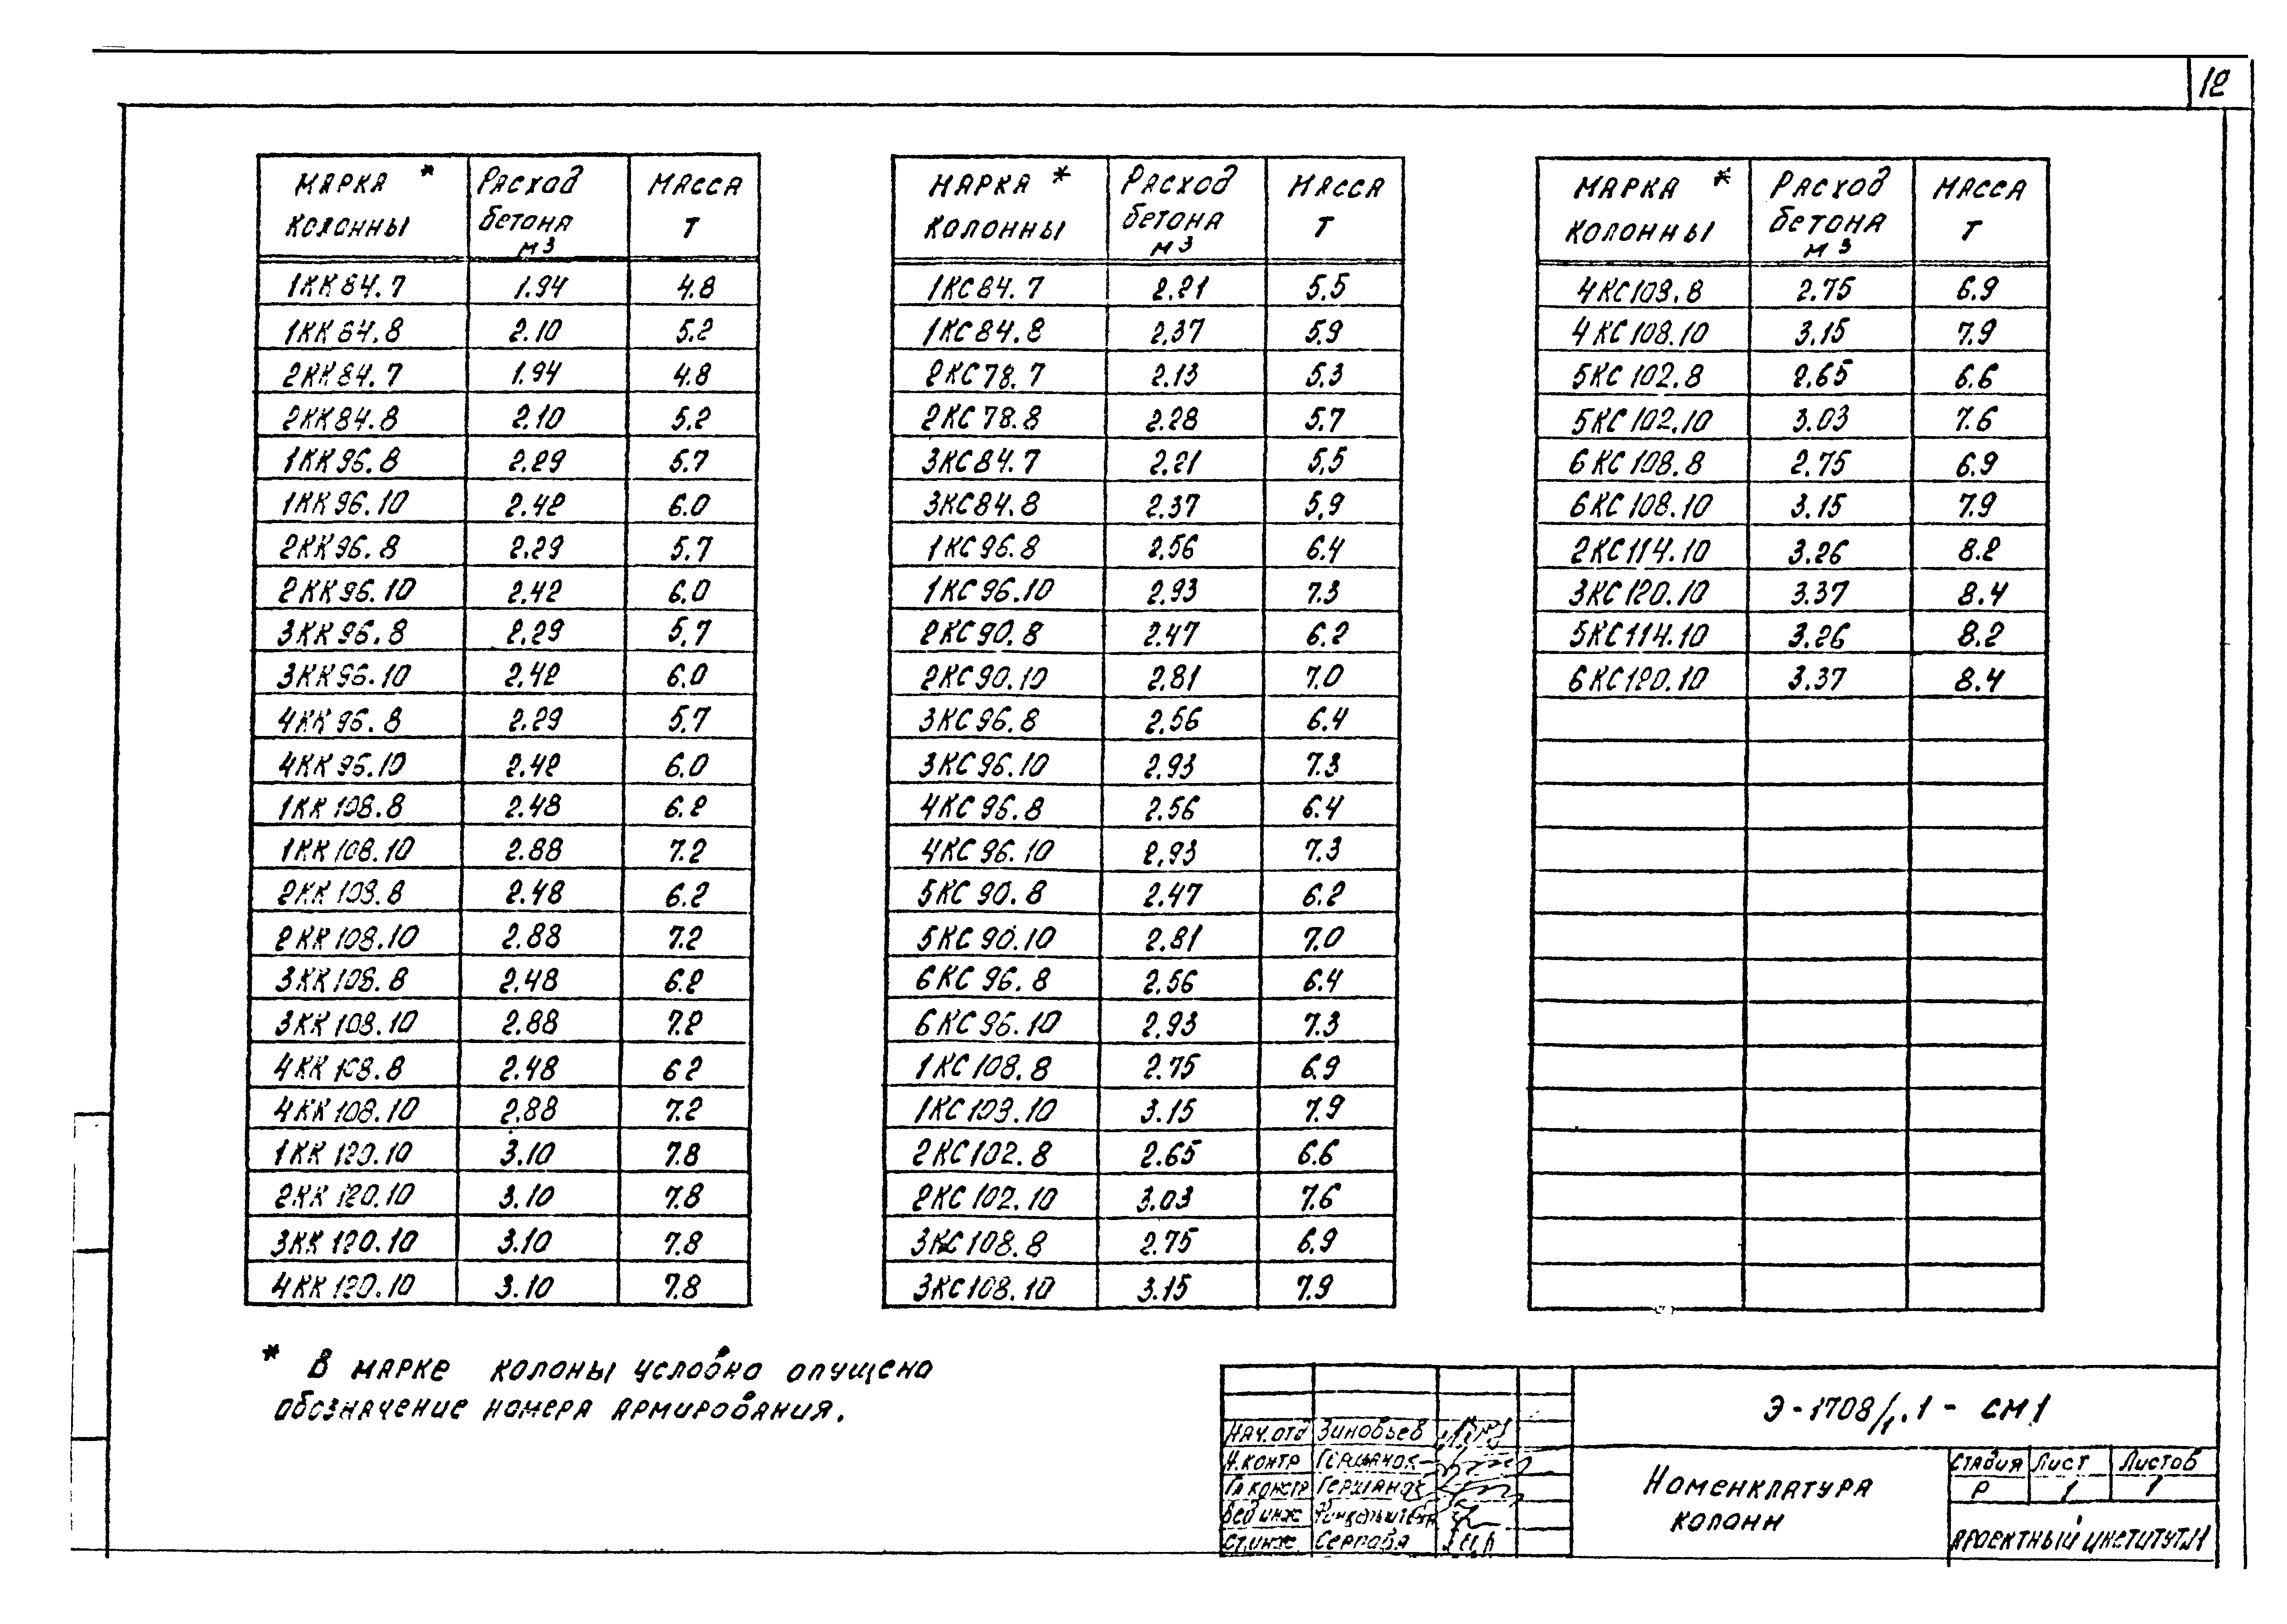 12
Марка * колонны | Расход бетона м3 | Масса т
1КК84.7 1.94 4.8
1КК84.8 2.10 5.2
2КК84.7 1.94 4.8
2КК84.8 2.10 5.2
1КК96.8 2.29 5.7
1КК96.10 2.42 6.0
2КК96.8 2.29 5.7
2КК96.10 2.42 6.0
3КК96.8 2.29 5.7
3КК96.10 2.42 6.0
4КК96.8 2.29 5.7
4КК96.10 2.42 6.0
1КК108.8 2.48 6.2
1КК108.10 2.88 7.2
2КК108.8 2.48 6.2
2КК108.10 2.88 7.2
3КК108.8 2.48 6.2
3КК108.10 2.88 7.2
4КК108.8 2.48 6.2
4КК108.10 2.88 7.2
1КК120.10 3.10 7.8
2КК120.10 3.10 7.8
3КК120.10 3.10 7.8
4КК120.10 3.10 7.8
Марка * колонны | Расход бетона м3 | Масса т
1КС84.7 2.21 5.5
1КС84.8 2.37 5.9
2КС78.7 2.13 5.3
2КС78.8 2.28 5.7
3КС84.7 2.21 5.5
3КС84.8 2.37 5.9
1КС96.8 2.56 6.4
1КС96.10 2.93 7.3
2КС90.8 2.47 6.2
2КС90.10 2.81 7.0
3КС96.8 2.56 6.4
3КС96.10 2.93 7.3
4КС96.8 2.56 6.4
4КС96.10 2.93 7.3
5КС90.8 2.47 6.2
5КС90.10 2.81 7.0
6КС96.8 2.56 6.4
6КС96.10 2.93 7.3
1КС108.8 2.75 6.9
1КС108.10 3.15 7.9
2КС102.8 2.65 6.6
2КС102.10 3.03 7.6
3КС108.8 2.75 6.9
3КС108.10 3.15 7.9
Марка * колонны | Расход бетона м3 | Масса т
4КС108.8 2.75 6.9
4КС108.10 3.15 7.9
5КС102.8 2.65 6.6
5КС102.10 3.03 7.6
6КС108.8 2.75 6.9
6КС108.10 3.15 7.9
2КС114.10 3.26 8.2
3КС120.10 3.37 8.4
5КС114.10 3.26 8.2
6КС120.10 3.37 8.4
* В марке колоны условно опущено
обозначение номера армирования.
Э-1708/1.1 - СМ1
Нач.отд Зиновьев
Н.контр
Гл констр
Вед инж
Ст.инж Серпова
Номенклатура
колонн
Стадия Лист Листов
Р 1 1
Проектный институт №1